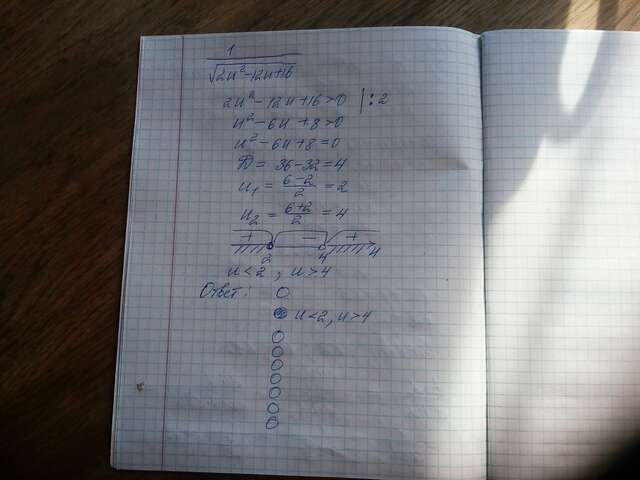 1
√2u²-12u+16
2u²-12u+16>0 |:2
u²-6u+8>0
u²-6u+8=0
D=36-32=4
u₁=6-2/2=2
u₂=6+2/2=4
+ - +
2 4 u
u<2, u>4
Ответ:
u<2, u>4